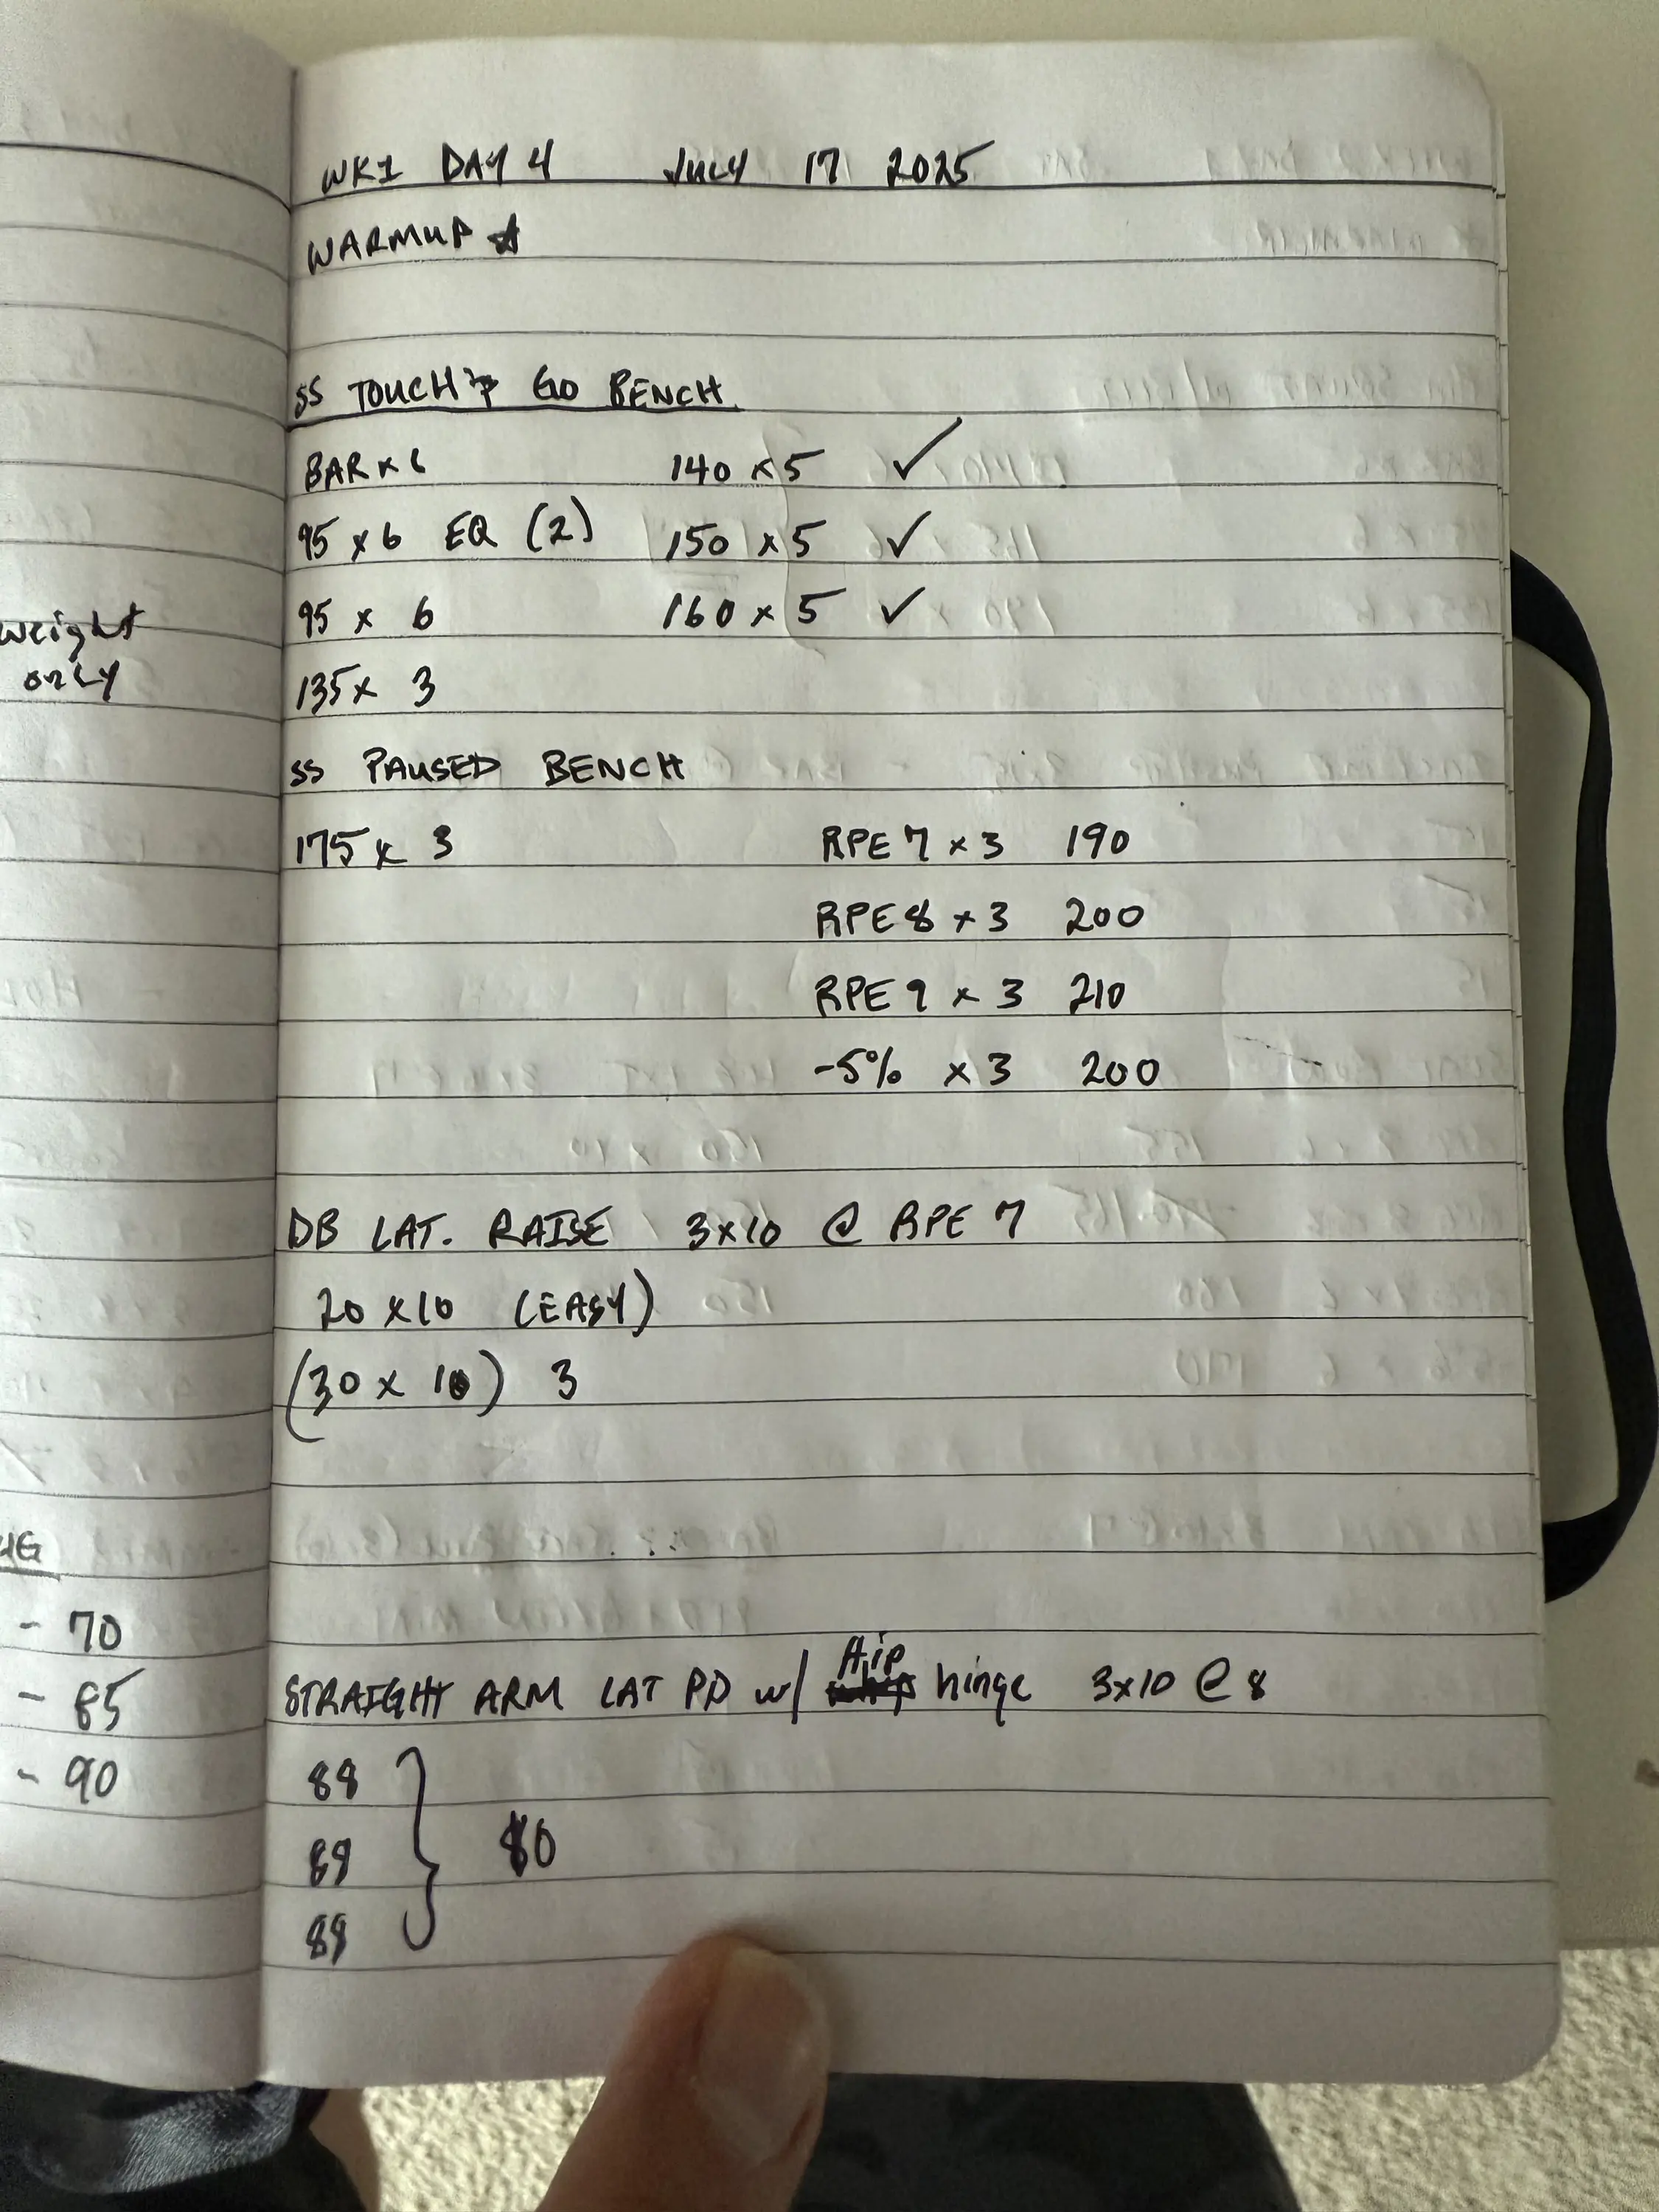 WK1 DAY 4 JULY 17 2025
WARMUP
SS TOUCH & GO BENCH
BAR x 6 140 x 5 ✓
95 x 6 EQ (2) 150 x 5 ✓
95 x 6 160 x 5 ✓
135 x 3
SS PAUSED BENCH
175 x 3 RPE 7 x 3 190
RPE 8 x 3 200
RPE 9 x 3 210
-5% x 3 200
DB LAT. RAISE 3x10 @ RPE 7
20 x 10 (EASY)
(30 x 10) 3
STRAIGHT ARM LAT PD w/ Hip hinge 3x10 @ 8
88
88
88
80
weight
only
- 70
- 85
- 90